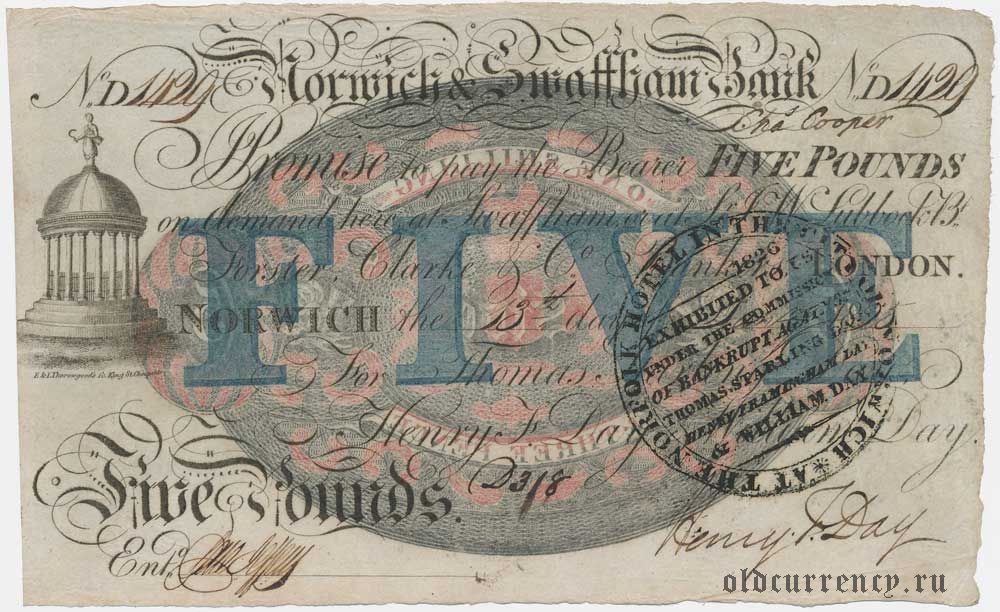 No. D1429 Norwich & Swaffham Bank No. D1429
Chas Cooper
I Promise to pay the Bearer FIVE POUNDS
on demand here at Swaffham or at Sir J. W. Lubbock Bt.
Forster Clarke & Co. Bankers LONDON.
NORWICH the 13th day
For Thomas
Henry F. Day
Day.
Five Pounds.
D3/8
Ent.
Henry F. Day
FIVE
ONE SHILLING
THREE PENCE
AT THE NORFOLK HOTEL IN THE CITY OF NORWICH
1826
EXHIBITED TO US
UNDER THE COMMISSION
OF BANKRUPT AGAINST
THOMAS STARLING DAY
HENRY FRAMINGHAM DAY
& WILLIAM DAY
oldcurrency.ru